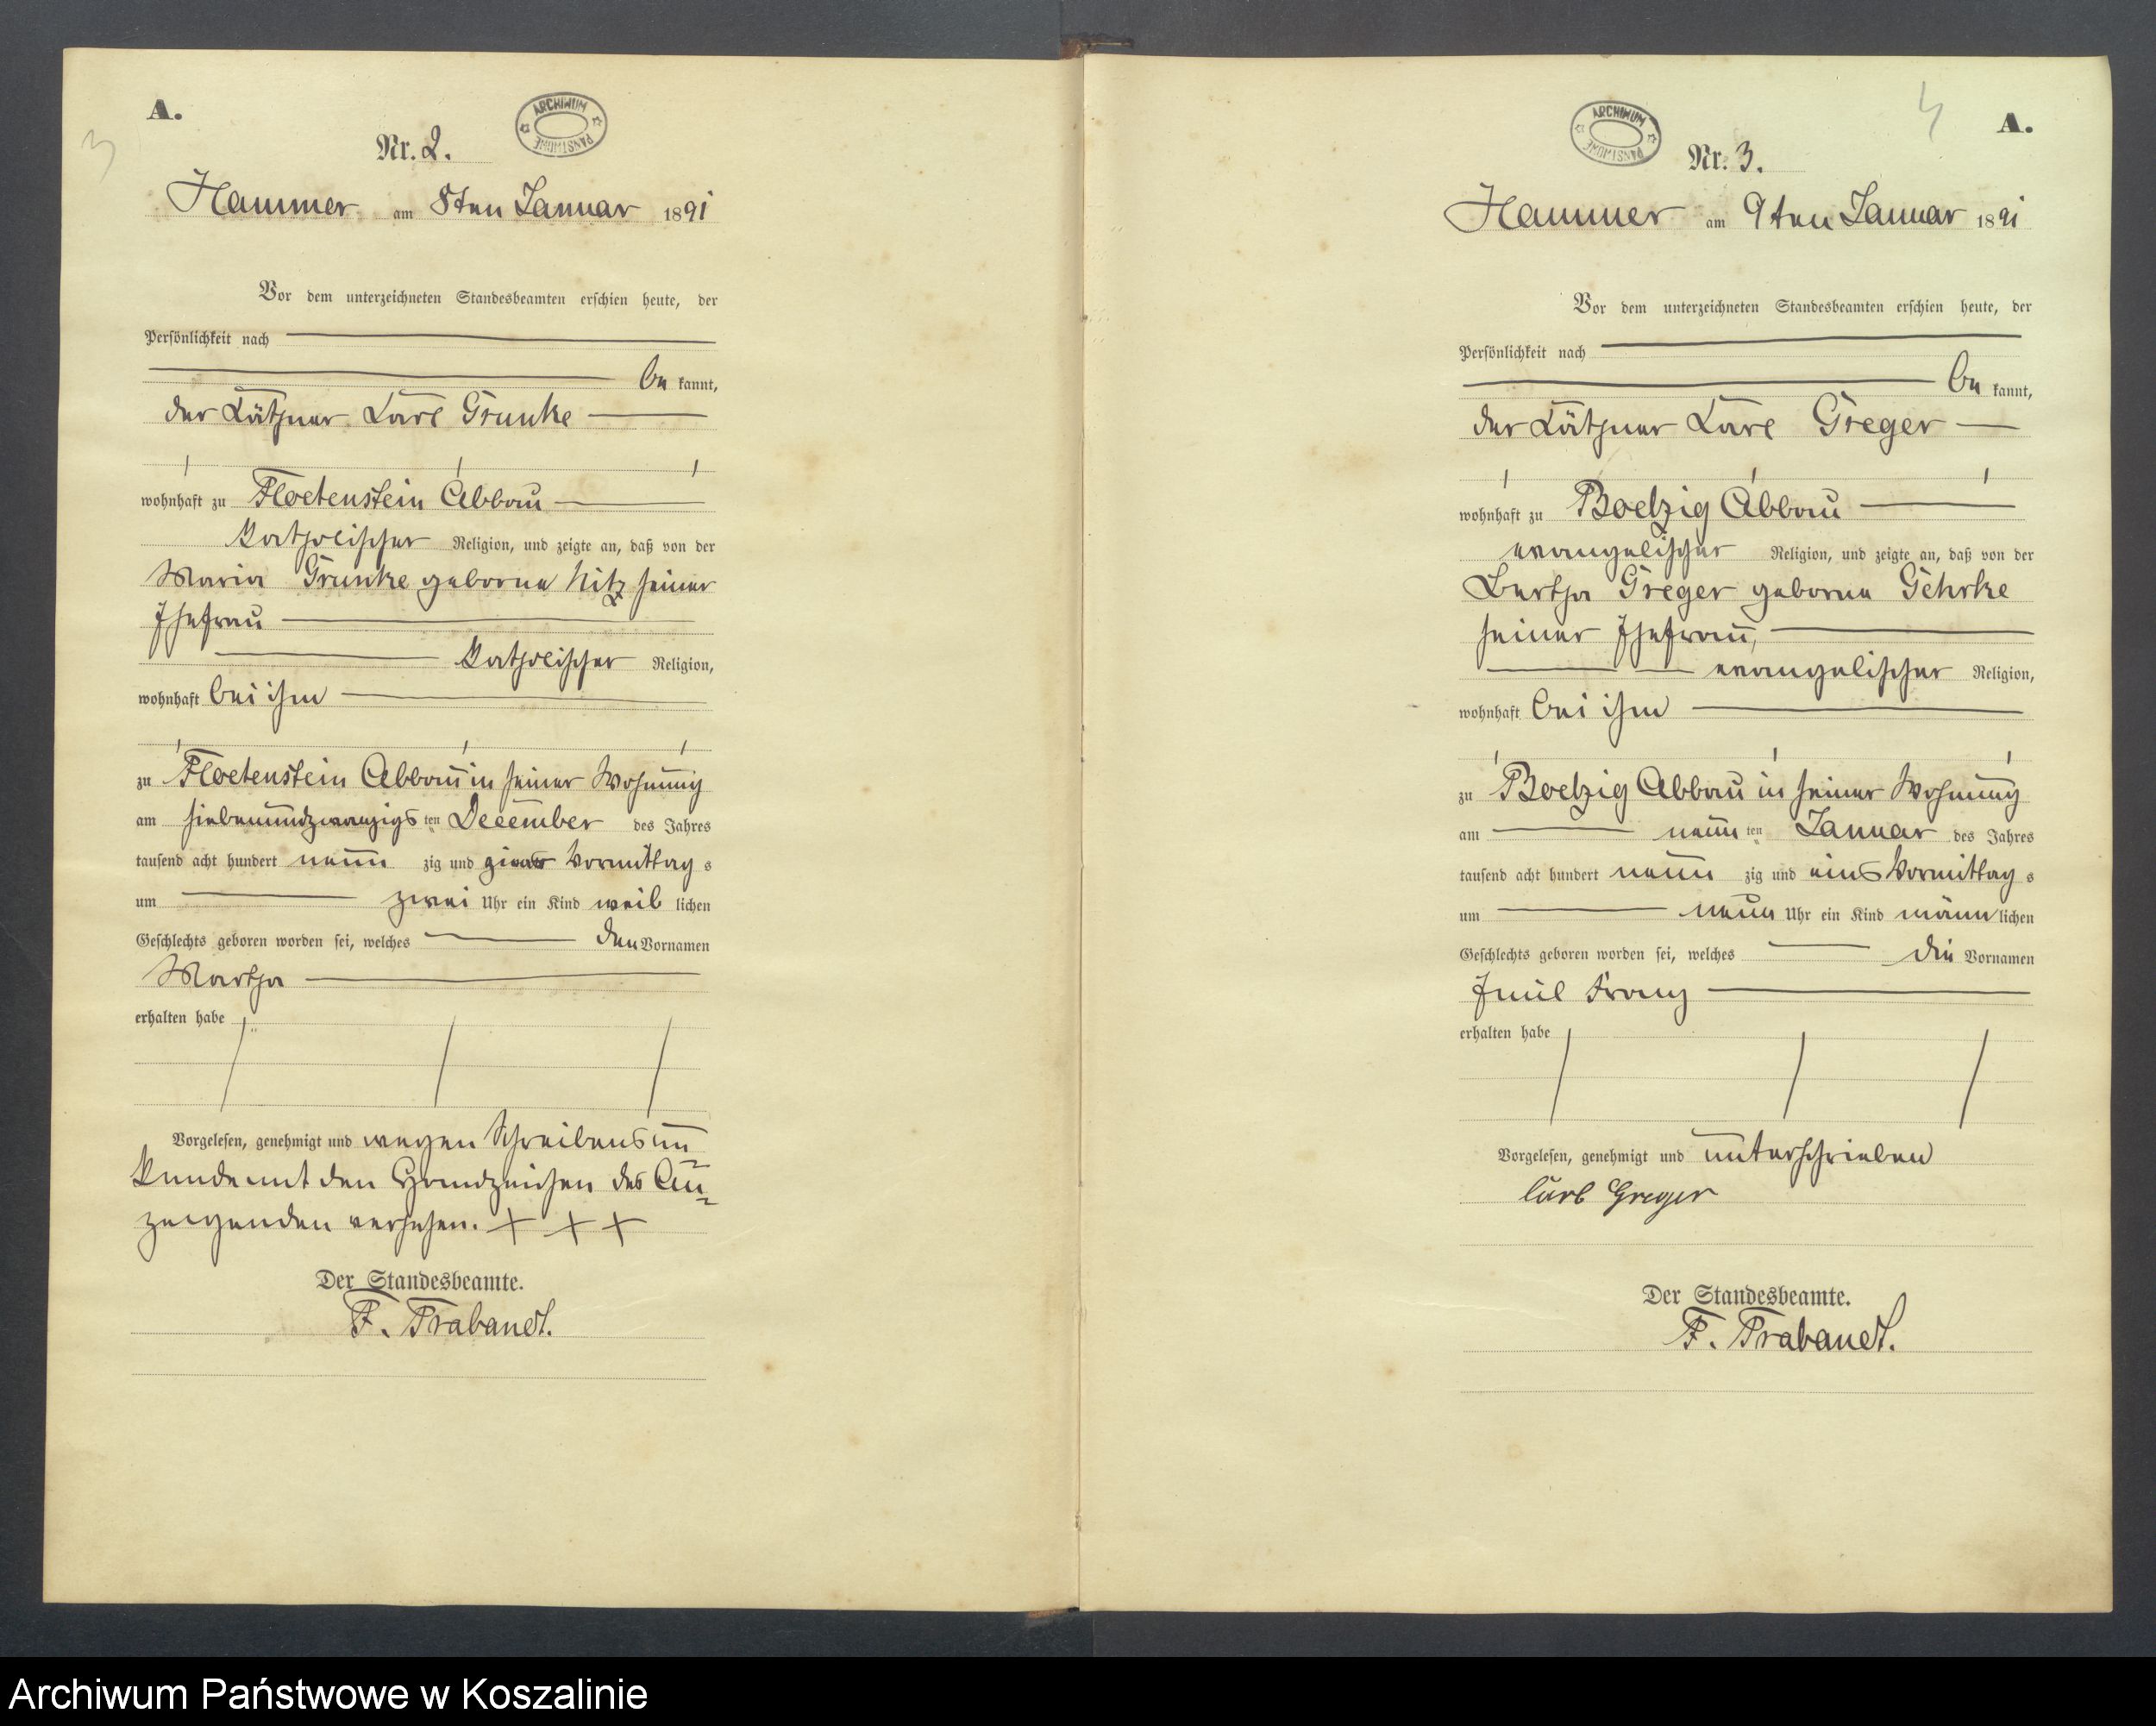 A.
3
ARCHIWUM PAŃSTWOWE
Nr. 2.
Hammer am 8ten Januar 1891
Vor dem unterzeichneten Standesbeamten erschien heute, der
Persönlichkeit nach
be kannt,
der Käthner Karl Grunke
wohnhaft zu Floetenstein Abbau
katholischer Religion, und zeigte an, daß von der
Maria Grunke geborne Nitz seiner
Ehefrau
katholischer Religion,
wohnhaft bei ihm
zu Floetenstein Abbau in seiner Wohnung
am siebenundzwanzigs ten December des Jahres
tausend acht hundert neun zig und Vormittag s
um zwei Uhr ein Kind weib lichen
Geschlechts geboren worden sei, welches den Vornamen
Martha
erhalten habe
Vorgelesen, genehmigt und wegen Schreibensun=
kunde mit den Handzeichen des An=
zeigenden versehen. + + +
Der Standesbeamte.
F. Trabandt.
4
A.
ARCHIWUM PAŃSTWOWE
Nr. 3.
Hammer am 9ten Januar 1891
Vor dem unterzeichneten Standesbeamten erschien heute, der
Persönlichkeit nach
be kannt,
der Käthner Karl Greger
wohnhaft zu Boelzig Abbau
evangelischer Religion, und zeigte an, daß von der
Bertha Greger geborne Gehrke
seiner Ehefrau,
evangelischer Religion,
wohnhaft bei ihm
zu Boelzig Abbau in seiner Wohnung
am neun ten Januar des Jahres
tausend acht hundert neun zig und eins Vormittag s
um neun Uhr ein Kind männ lichen
Geschlechts geboren worden sei, welches die Vornamen
Emil Franz
erhalten habe
Vorgelesen, genehmigt und unterschrieben
Carl Greger
Der Standesbeamte.
F. Trabandt.
Archiwum Państwowe w Koszalinie